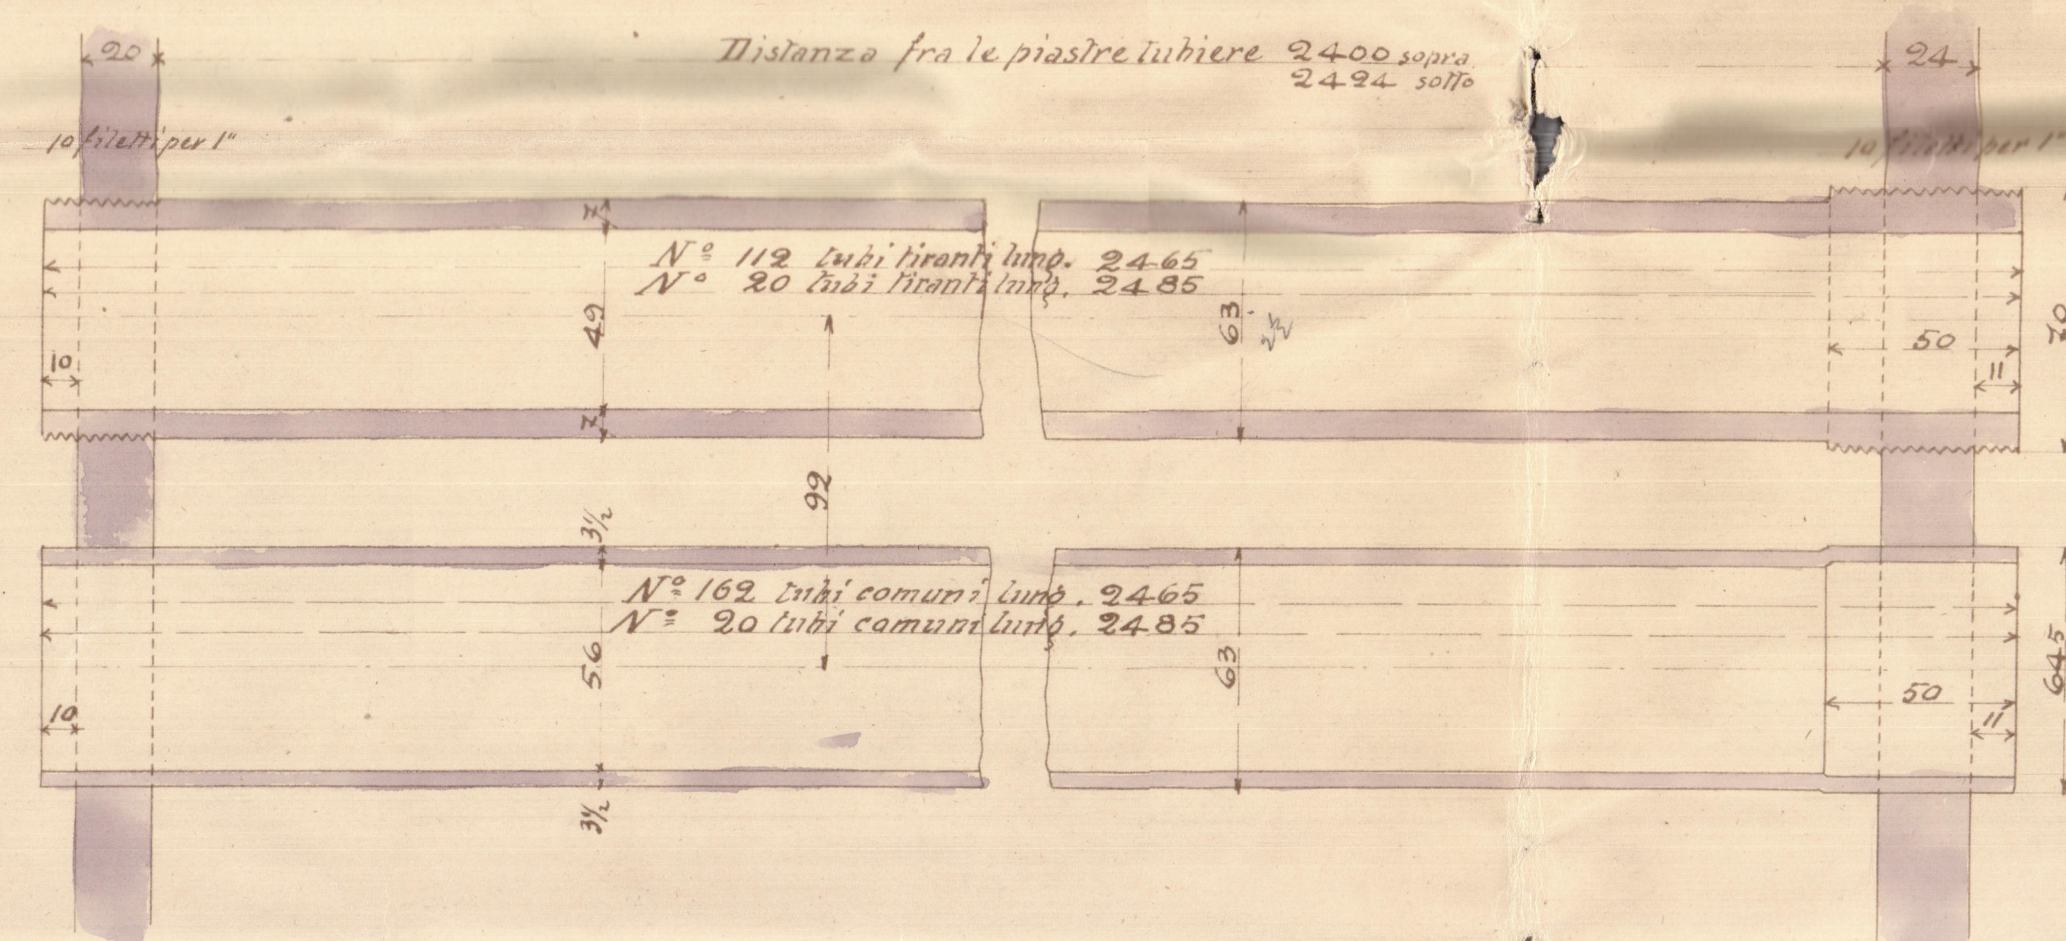 20
Distanza fra le piastre tubiere 2400 sopra
2424 sotto
24
10 filetti per 1"
10 filetti per 1"
7
Nº 112 tubi tiranti lung. 2465
Nº 20 tubi tiranti lung. 2485
49
63
70
50
10
11
7
92
3½
Nº 162 tubi comuni lung. 2465
Nº 20 tubi comuni lung. 2485
56
63
645
50
10
11
3½